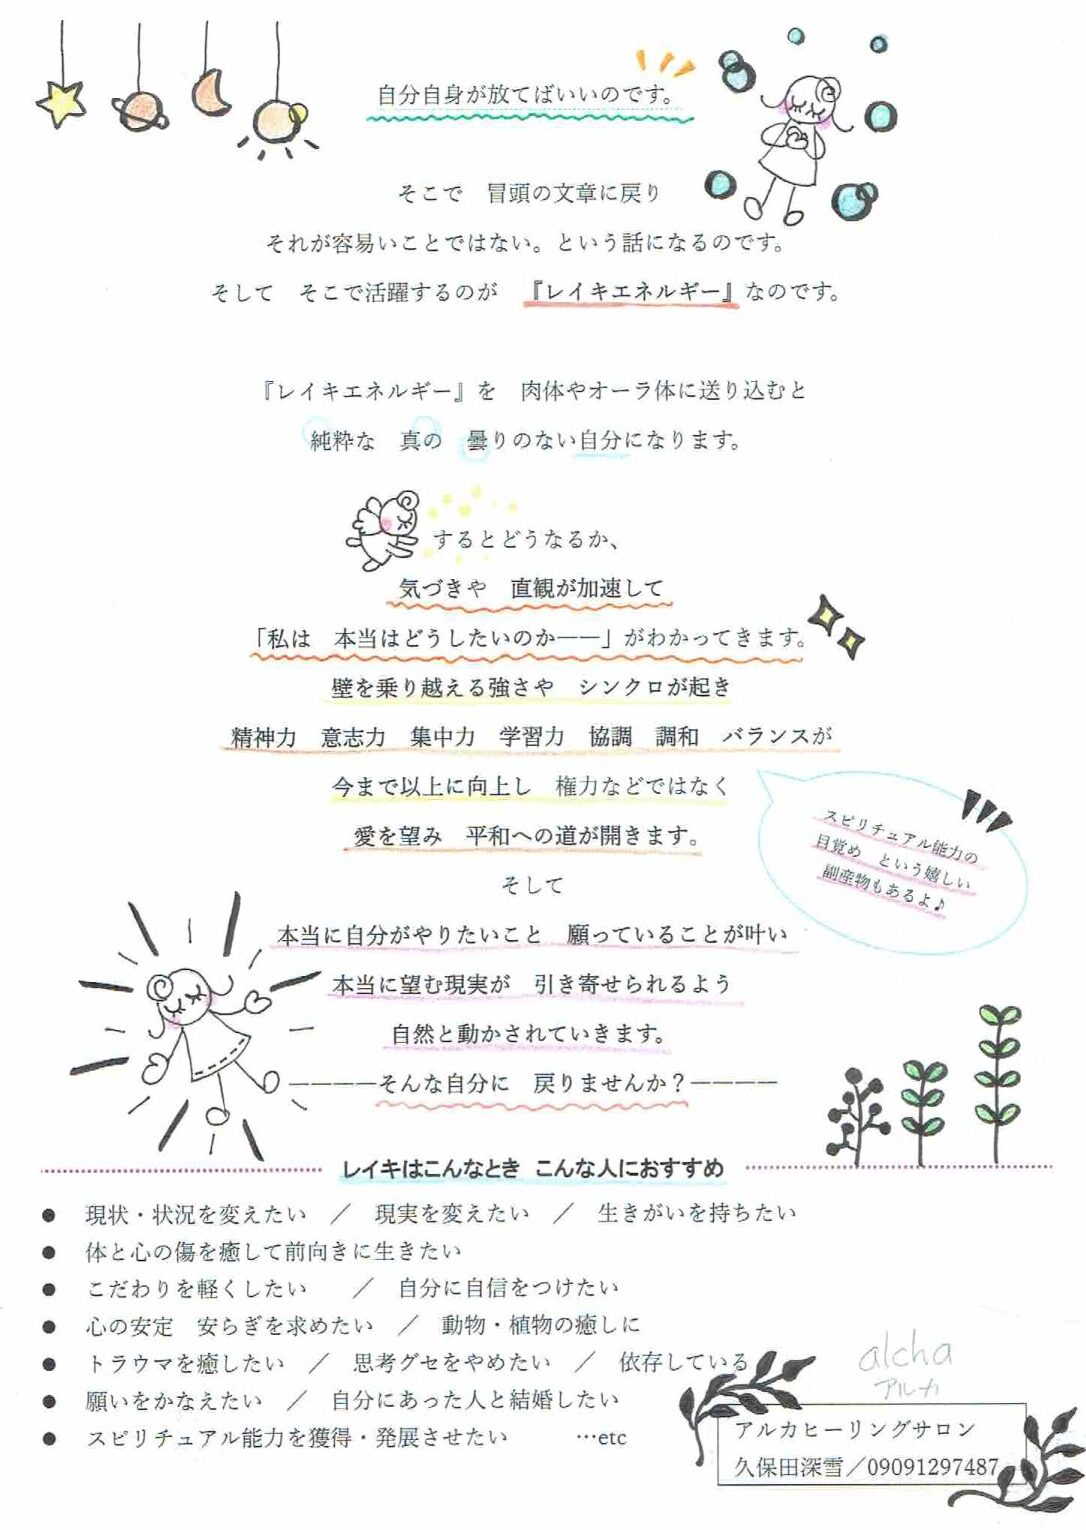 自分自身が放てばいいのです。
そこで　冒頭の文章に戻り
それが容易いことではない。という話になるのです。
そして　そこで活躍するのが　『レイキエネルギー』なのです。
『レイキエネルギー』を　肉体やオーラ体に送り込むと
純粋な　真の　曇りのない自分になります。
するとどうなるか、
気づきや　直観が加速して
「私は　本当はどうしたいのか――」がわかってきます。
壁を乗り越える強さや　シンクロが起き
精神力　意志力　集中力　学習力　協調　調和　バランスが
今まで以上に向上し　権力などではなく
愛を望み　平和への道が開きます。
スピリチュアル能力の
目覚め　という嬉しい
副産物もあるよ♪
そして
本当に自分がやりたいこと　願っていることが叶い
本当に望む現実が　引き寄せられるよう
自然と動かされていきます。
――――そんな自分に　戻りませんか？――――
レイキはこんなとき　こんな人におすすめ
● 現状・状況を変えたい　／　現実を変えたい　／　生きがいを持ちたい
● 体と心の傷を癒して前向きに生きたい
● こだわりを軽くしたい　　／　自分に自信をつけたい
● 心の安定　安らぎを求めたい　／　動物・植物の癒しに
● トラウマを癒したい　／　思考グセをやめたい　／　依存している
● 願いをかなえたい　／　自分にあった人と結婚したい
● スピリチュアル能力を獲得・発展させたい　　　…etc
alcha
アルカ
アルカヒーリングサロン
久保田深雪／09091297487